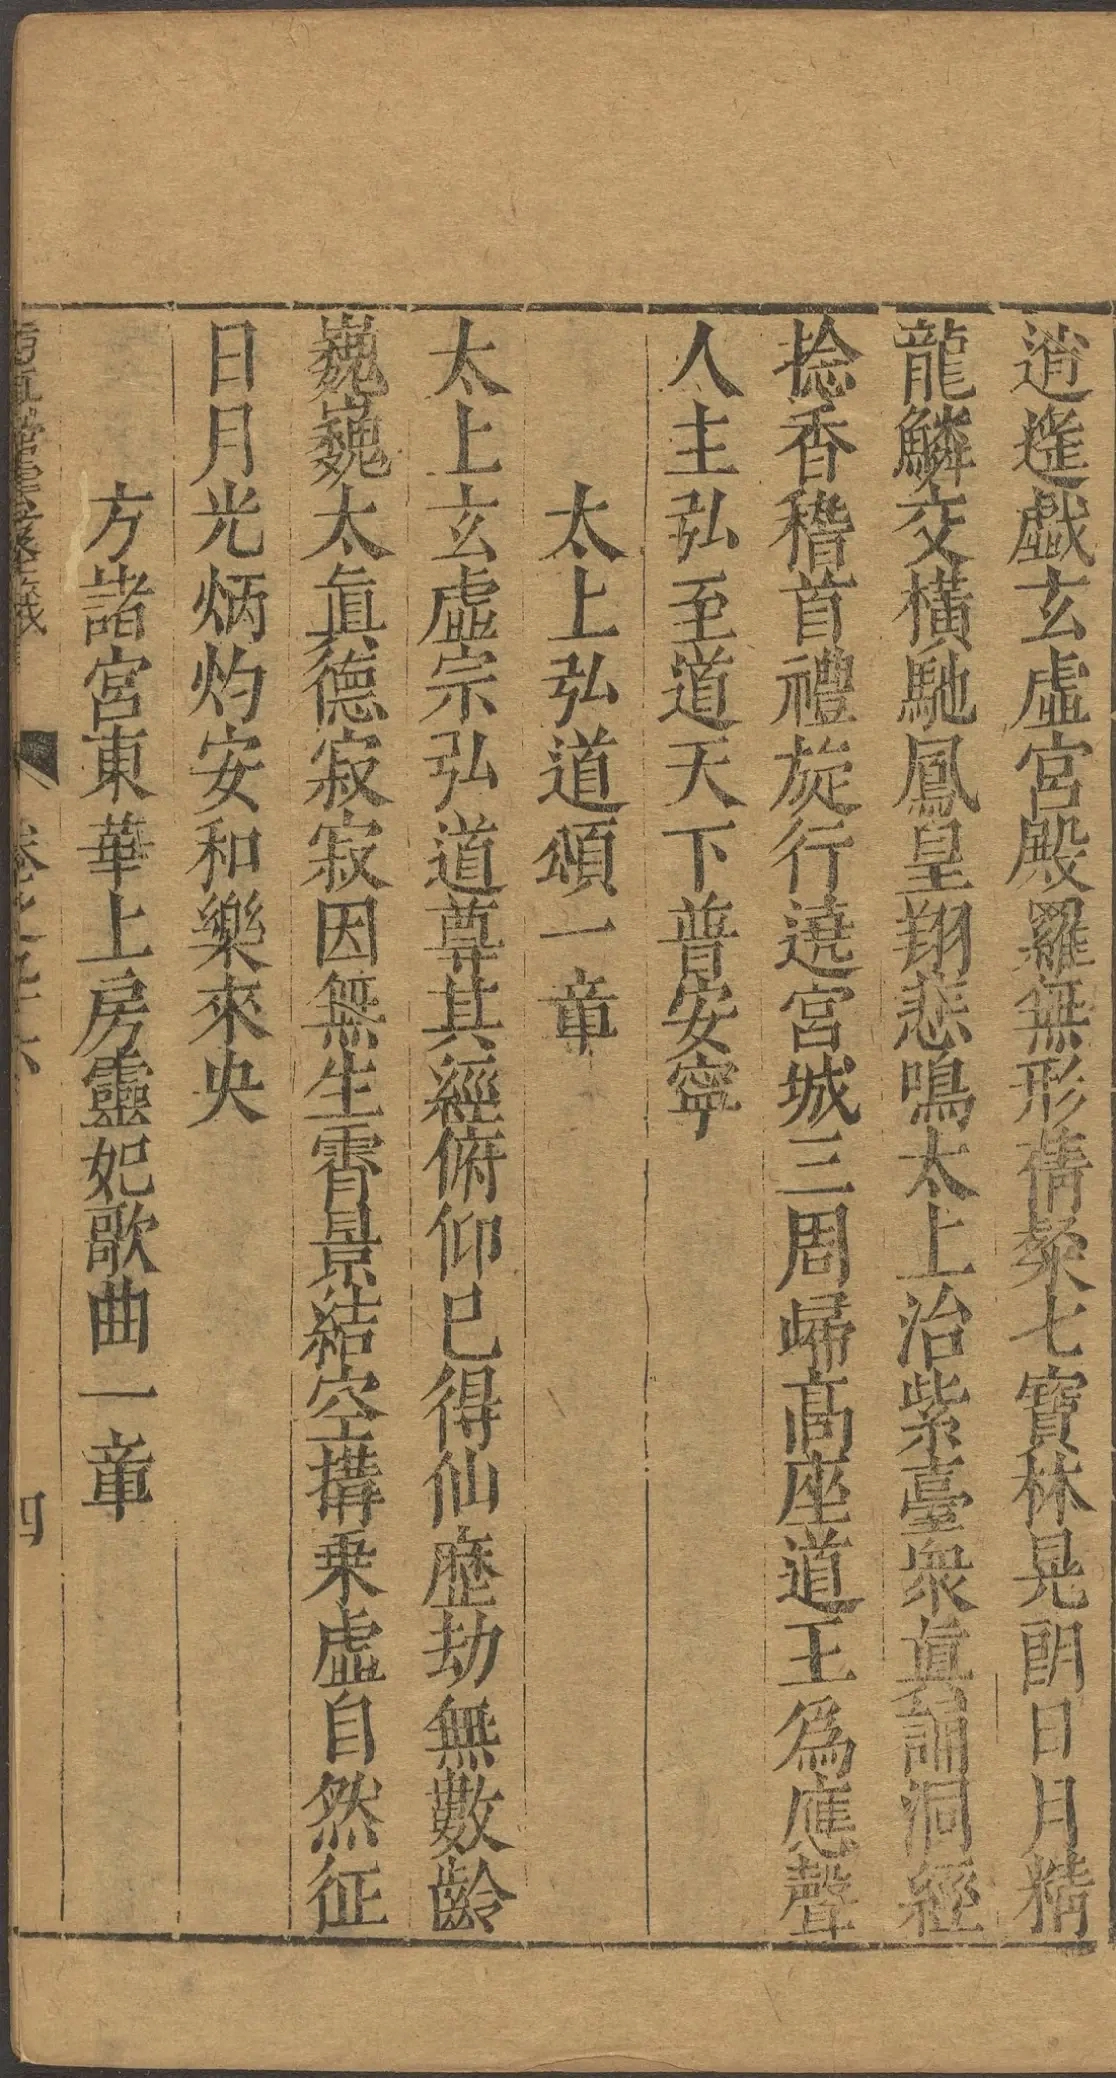 逍遙戯玄虛宮殿羅無形蒨粲七寶林晃朗日月精
龍鱗交橫馳鳳皇翔悲鳴太上治紫臺衆眞誦洞經
捻香稽首禮旋行遶宮城三周歸髙座道王爲應聲
人主弘至道天下普安寧
太上弘道頌一章
太上玄虛宗弘道尊其經俯仰已得仙歷劫無數齡
巍巍太眞德寂寂因無生霄景結空搆乗虛自然征
日月光炳灼安和樂來央
方諸宮東華上房靈妃歌曲一章
卷之九十六
四